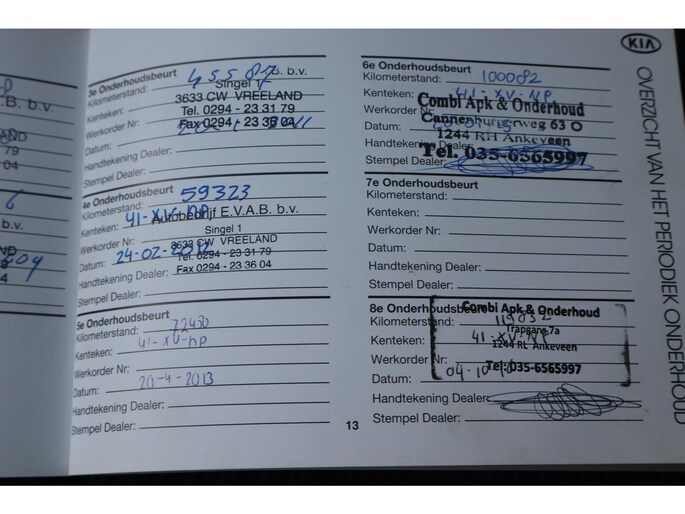 KIA
OVERZICHT VAN HET PERIODIEK ONDERHOUD
3e Onderhoudsbeurt B. b.v.
Kilometerstand: Singel 1
Kenteken: 3633 CW VREELAND
Tel. 0294 - 23 31 79
Werkorder Nr: Fax 0294 - 23 36 04
Datum:
Handtekening Dealer:
Stempel Dealer:
4e Onderhoudsbeurt 59323
Kilometerstand:
Kenteken: 41-XV-NP Autobedrijf E.V.A.B. b.v.
Singel 1
Werkorder Nr: 3633 CW VREELAND
Datum: 24-02-2012 Tel. 0294 - 23 31 79
Handtekening Dealer: Fax 0294 - 23 36 04
Stempel Dealer:
5e Onderhoudsbeurt
Kilometerstand:
Kenteken: 41-XV-NP
Werkorder Nr:
Datum: 20-4-2013
Handtekening Dealer:
Stempel Dealer:
13
6e Onderhoudsbeurt
Kilometerstand: 100082
Kenteken: 41-XV-NP
Combi Apk & Onderhoud
Werkorder Nr:
Datum:
1244 RH Ankeveen
Handtekening Dealer:
Stempel Dealer: Tel. 035-6565997
7e Onderhoudsbeurt
Kilometerstand:
Kenteken:
Werkorder Nr:
Datum:
Handtekening Dealer:
Stempel Dealer:
8e Onderhoudsbeurt Combi Apk & Onderhoud
Kilometerstand:
Trapgans 7a
Kenteken: 41-XV-NP
1244 RL Ankeveen
Werkorder Nr:
Tel: 035-6565997
Datum:
Handtekening Dealer:
Stempel Dealer: